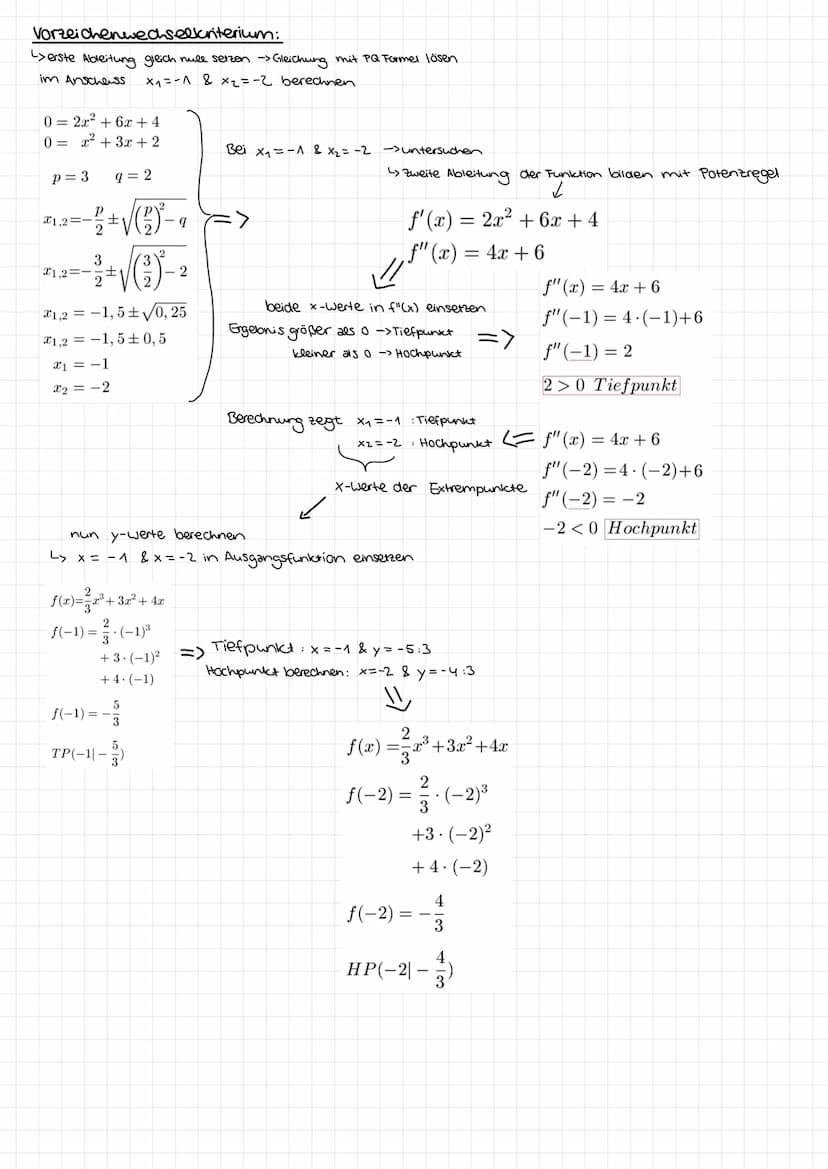 Vorzeichenwechselkriterium:
↳erste Ableitung gleich null setzen →Gleichung mit PQ Formel lösen
im Anschluss x₁=-1 & x₂=-2 berechnen
0 = 2x² + 6x + 4
0 = x² + 3x + 2
p = 3 q = 2
x₁,₂=-p/2±√((p/2)²-q)
x₁,₂=-3/2±√((3/2)²-2)
x₁,₂ = -1,5±√0,25
x₁,₂ = -1,5±0,5
x₁ = -1
x₂ = -2
=>
Bei x₁=-1 & x₂=-2 →untersuchen
↳zweite Ableitung der Funktion bilden mit Potenzregel
↓
f'(x) = 2x² + 6x + 4
f''(x) = 4x + 6
beide x-Werte in f"(x) einsetzen
Ergebnis größer als 0 →Tiefpunkt
kleiner als 0 →Hochpunkt
=>
f''(x) = 4x + 6
f''(-1) = 4·(-1)+6
f''(-1) = 2
2 > 0 Tiefpunkt
f''(x) = 4x + 6
f''(-2) =4·(-2)+6
f''(-2) = -2
-2 < 0 Hochpunkt
<=
Berechnung zegt x₁=-1 :Tiefpunkt
x₂=-2 : Hochpunkt
x-Werte der Extrempunkte
nun y-Werte berechnen
↳ x = -1 & x=-2 in Ausgangsfunktion einsetzen
f(x)=2/3x³+3x²+4x
f(-1) = 2/3·(-1)³
+3·(-1)²
+4·(-1)
f(-1) = -5/3
TP(-1|-5/3)
=> Tiefpunkt : x=-1 & y=-5:3
Hochpunkt berechnen: x=-2 & y=-4:3
f(x) =2/3x³+3x²+4x
f(-2) = 2/3·(-2)³
+3·(-2)²
+4·(-2)
f(-2) = -4/3
HP(-2|-4/3)